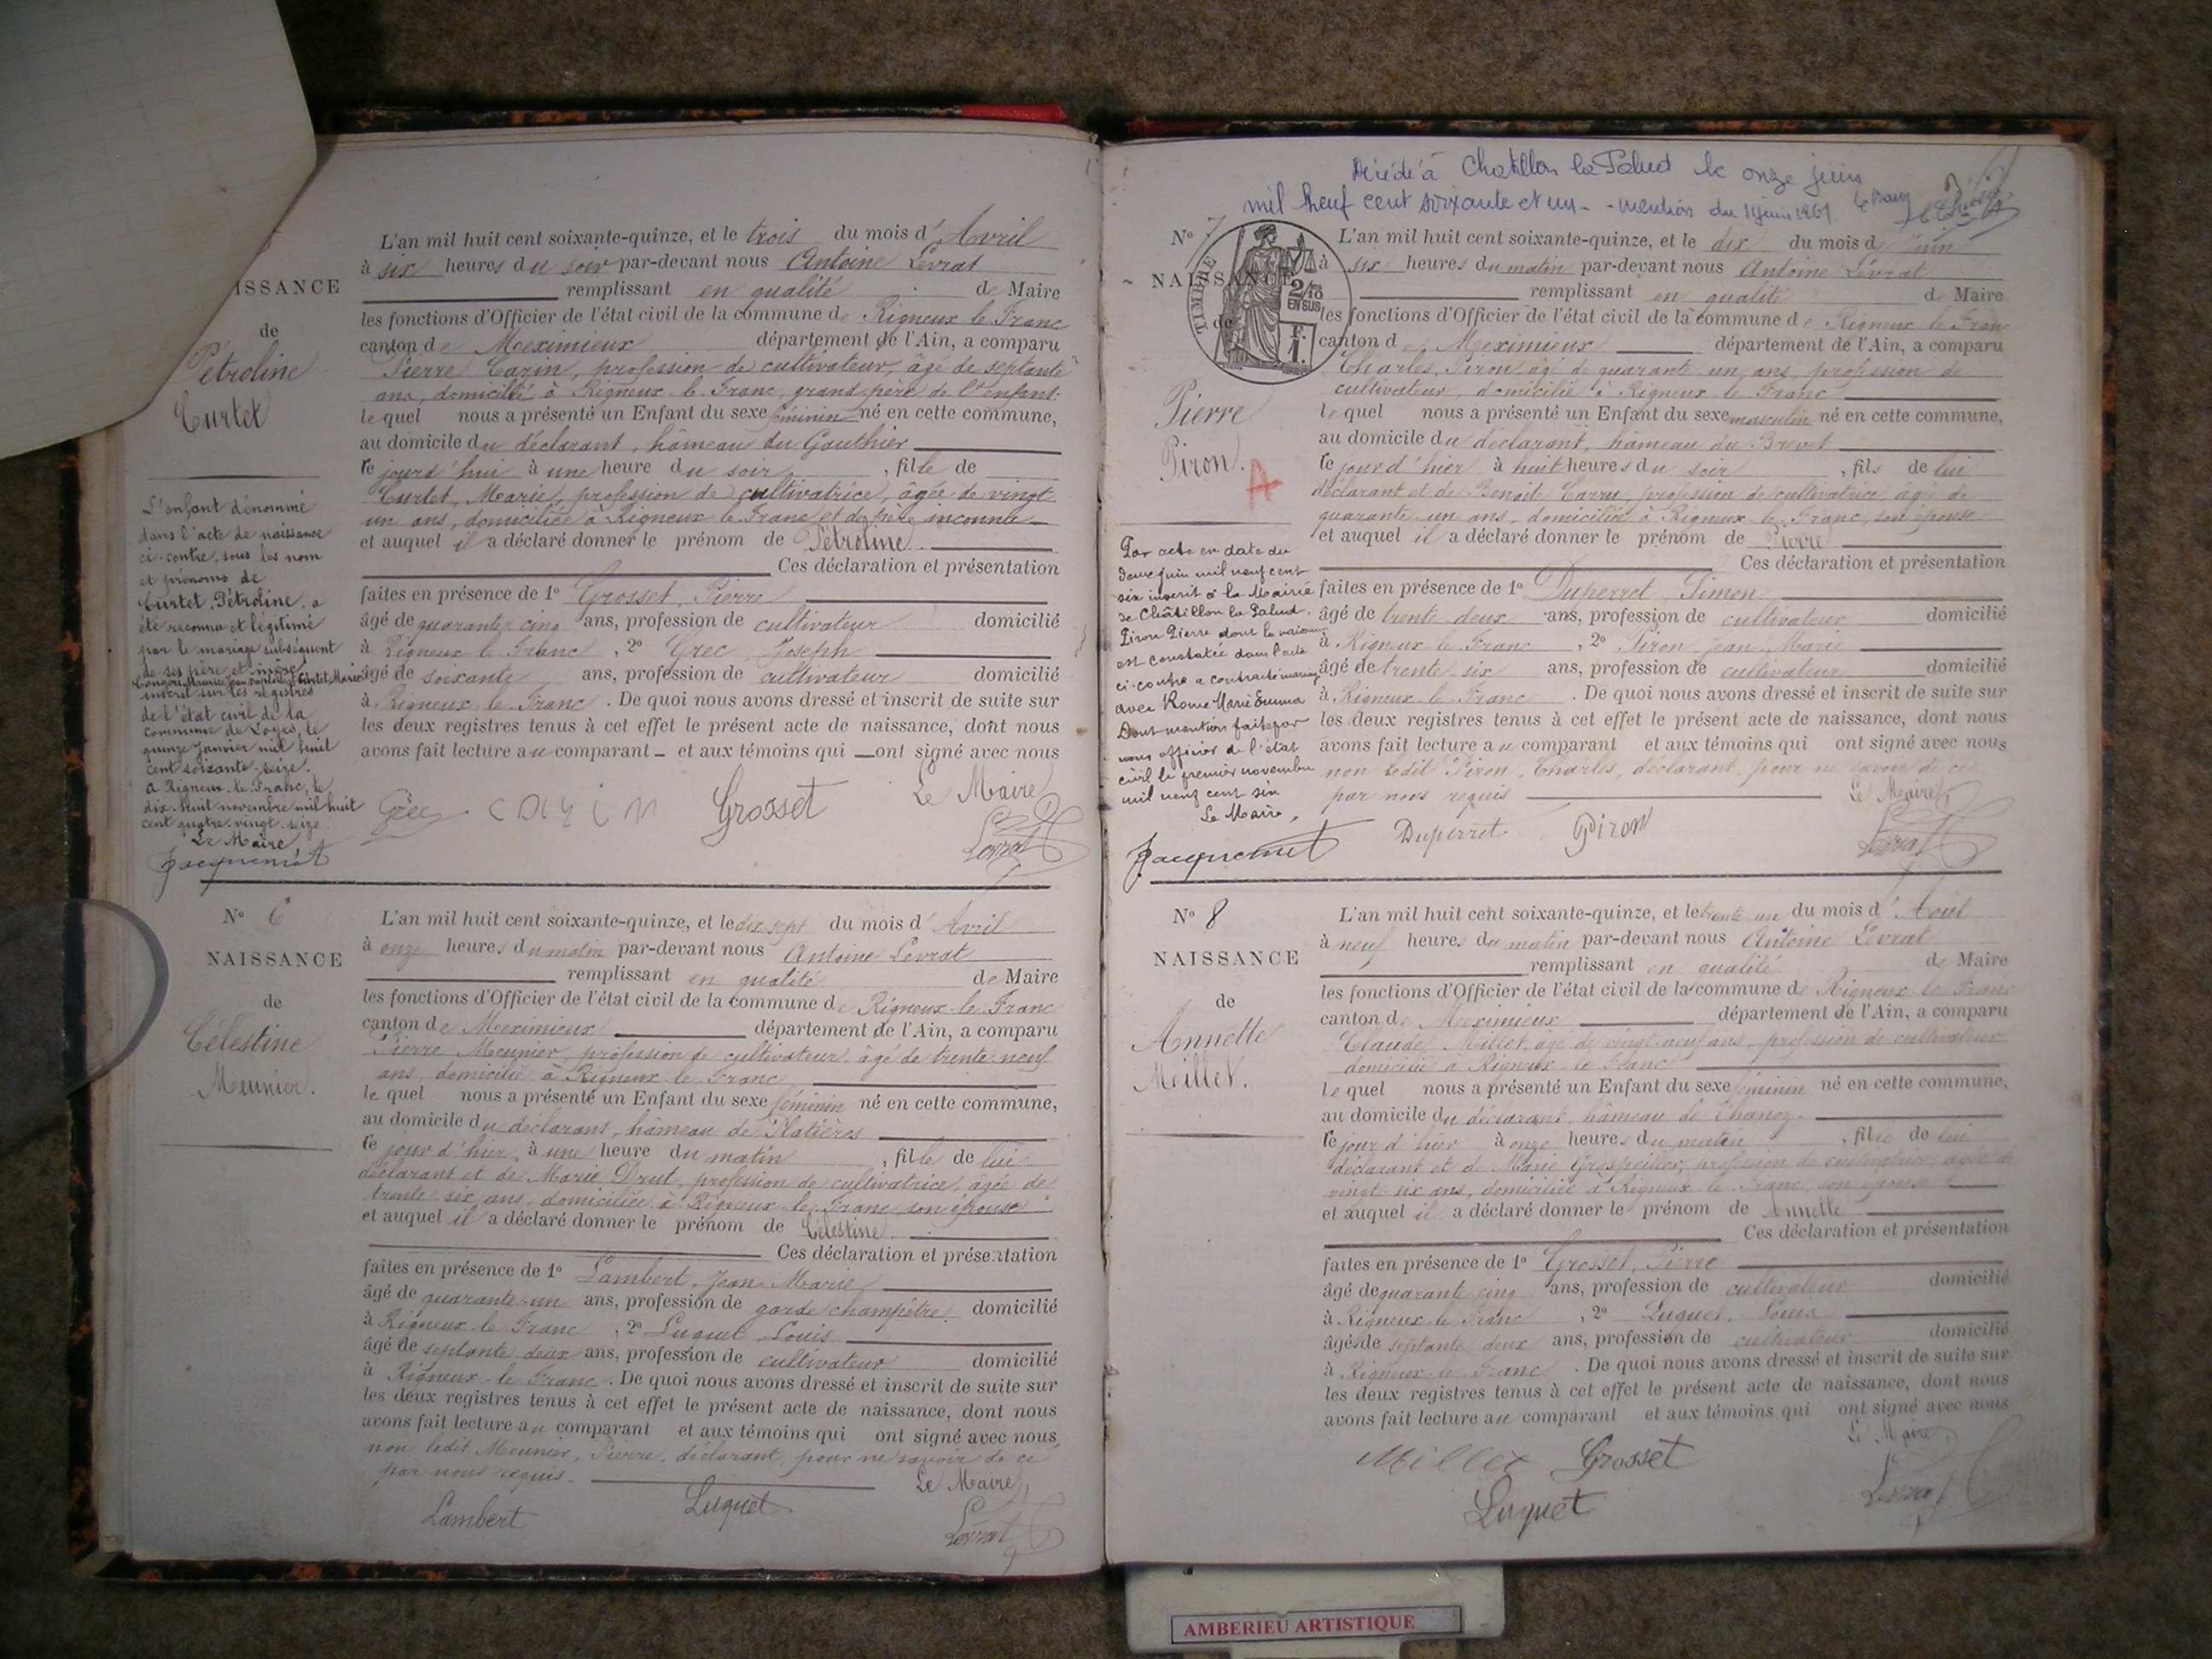 5
ISSANCE
de
Pétroline
Curtet
L'enfant dénommé
dans l'acte de naissance
ci-contre, sous les nom
et prénoms de
Curtet, Pétroline, a
été reconnu et légitimé
par le mariage subséquent
de ses père et mère,
Curtet Marie
inscrit sur les registres
de l'état civil de la
commune de Loyes, le
quinze janvier mil huit
cent soixante-seize.
A Rigneux-le-Franc, le
dix-huit novembre mil huit
cent quatre-vingt-seize
Le Maire,
Jacquemet
L'an mil huit cent soixante-quinze, et le trois du mois d'Avril
à six heures du soir par-devant nous Antoine Levrat
remplissant en qualité de Maire
les fonctions d'Officier de l'état civil de la commune de Rigneux le Franc
canton de Meximieux département de l'Ain, a comparu
Pierre Carin, profession de cultivateur, âgé de septante
ans, domicilié à Rigneux-le-Franc, grand-père de l'enfant
lequel nous a présenté un Enfant du sexe féminin né en cette commune,
au domicile du déclarant, hâmeau du Gauthier
ce jourd'hui à une heure du soir, fille de
Curtet, Marie, profession de cultivatrice, âgée de vingt-
un ans, domiciliée à Rigneux le Franc et de père inconnu
et auquel il a déclaré donner le prénom de Pétroline
Ces déclaration et présentation
faites en présence de 1º Grosset, Pierre
âgé de quarante-cinq ans, profession de cultivateur domicilié
à Rigneux le Franc, 2º Grec, Joseph
âgé de soixante ans, profession de cultivateur domicilié
à Rigneux-le-Franc. De quoi nous avons dressé et inscrit de suite sur
les deux registres tenus à cet effet le présent acte de naissance, dont nous
avons fait lecture au comparant et aux témoins qui ont signé avec nous
Le Maire
Grec carin Grosset Levrat
Nº 6
NAISSANCE
de
Célestine
Meunier.
L'an mil huit cent soixante-quinze, et le dix sept du mois d'Avril
à onze heures du matin par-devant nous Antoine Levrat
remplissant en qualité de Maire
les fonctions d'Officier de l'état civil de la commune de Rigneux-le-Franc
canton de Meximieux département de l'Ain, a comparu
Pierre Meunier, profession de cultivateur, âgé de trente-neuf
ans, domicilié à Rigneux le Franc
lequel nous a présenté un Enfant du sexe féminin né en cette commune,
au domicile du déclarant, hâmeau de Platières
ce jour d'hier, à une heure du matin, fille de lui
déclarant et de Marie Drut, profession de cultivatrice, âgée de
trente-six ans, domiciliée à Rigneux-le-Franc, son épouse
et auquel il a déclaré donner le prénom de Célestine
Ces déclaration et présentation
faites en présence de 1º Lambert, Jean-Marie
âgé de quarante-un ans, profession de garde champêtre, domicilié
à Rigneux-le-Franc, 2º Luquet, Louis
âgé de septante deux ans, profession de cultivateur domicilié
à Rigneux-le-Franc. De quoi nous avons dressé et inscrit de suite sur
les deux registres tenus à cet effet le présent acte de naissance, dont nous
avons fait lecture au comparant et aux témoins qui ont signé avec nous,
non ledit Meunier, Pierre, déclarant, pour ne savoir de ce
par nous requis.
Le Maire,
Lambert Luquet Levrat
Décédé à Chatillon la Palud le onze juin
mil neuf cent soixante et un - mention du 11 juin 1961
Nº 7
NAISSANCE
de
Pierre
Piron.
A
TIMBRE
2/10
EN SUS
F.
1.
Par acte en date du
deux juin mil neuf cent
six inscrit à la Mairie
de Châtillon la Palud,
Piron Pierre dont la naissance
est constatée dans l'acte
ci-contre a contracté mariage
avec Rome Marie Emma
Dont mention faite par
nous officier de l'état
civil le premier novembre
mil neuf cent six
Le Maire,
Jacquemet
L'an mil huit cent soixante-quinze, et le dix du mois de Juin
à six heures du matin par-devant nous Antoine Levrat
remplissant en qualité de Maire
les fonctions d'Officier de l'état civil de la commune de Rigneux le Franc
canton de Meximieux département de l'Ain, a comparu
Charles, Piron, âgé de quarante-un ans, profession de
cultivateur, domicilié à Rigneux le Franc
lequel nous a présenté un Enfant du sexe masculin né en cette commune,
au domicile du déclarant, hâmeau du Brevet
ce jour d'hier à huit heures du soir, fils de lui
déclarant et de Benoite Carry, profession de cultivatrice âgée de
quarante-un ans, domiciliée à Rigneux le Franc, son épouse
et auquel il a déclaré donner le prénom de Pierre
Ces déclaration et présentation
faites en présence de 1º Duperret, Simon
âgé de trente deux ans, profession de cultivateur domicilié
à Rigneux le Franc, 2º Piron, Jean-Marie
âgé de trente-six ans, profession de cultivateur domicilié
à Rigneux-le-Franc. De quoi nous avons dressé et inscrit de suite sur
les deux registres tenus à cet effet le présent acte de naissance, dont nous
avons fait lecture au comparant et aux témoins qui ont signé avec nous,
non ledit Piron, Charles, déclarant, pour ne savoir de ce
par nous requis
Le Maire
Duperret Piron Levrat
Nº 8
NAISSANCE
de
Annette
Millet.
L'an mil huit cent soixante-quinze, et le trente un du mois d'Août
à neuf heures du matin par-devant nous Antoine Levrat
remplissant en qualité de Maire
les fonctions d'Officier de l'état civil de la commune de Rigneux-le-Franc
canton de Meximieux département de l'Ain, a comparu
Claude Millet, âgé de vingt-neuf ans, profession de cultivateur
domicilié à Rigneux le Franc
lequel nous a présenté un Enfant du sexe féminin né en cette commune,
au domicile du déclarant, hâmeau de Chanoz
ce jour d'hier à onze heures du matin, fille de lui
déclarant et de Marie profession de cultivatrice, âgée de
vingt-six ans, domiciliée à Rigneux le Franc, son épouse
et auquel il a déclaré donner le prénom de Annette
Ces déclaration et présentation
faites en présence de 1º Grosset, Pierre
âgé de quarante-cinq ans, profession de cultivateur domicilié
à Rigneux le Franc, 2º Luquet, Louis
âgé de septante deux ans, profession de cultivateur domicilié
à Rigneux-le-Franc. De quoi nous avons dressé et inscrit de suite sur
les deux registres tenus à cet effet le présent acte de naissance, dont nous
avons fait lecture au comparant et aux témoins qui ont signé avec nous
Le Maire,
Millet Grosset
Luquet Levrat
AMBERIEU ARTISTIQUE